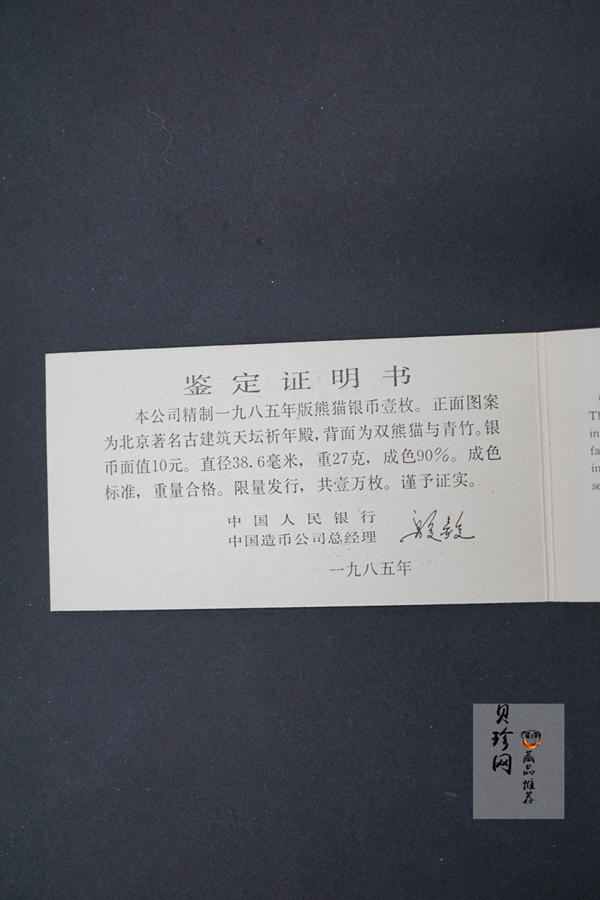 鉴定证明书
本公司精制一九八五年版熊猫银币壹枚。正面图案
为北京著名古建筑天坛祈年殿,背面为双熊猫与青竹。银
币面值10元。直径38.6毫米,重27克,成色90%。成色
标准,重量合格。限量发行,共壹万枚。谨予证实。
中国人民银行
中国造币公司总经理
一九八五年
Th
in
fa
in
se
贝珍网
藏品推荐